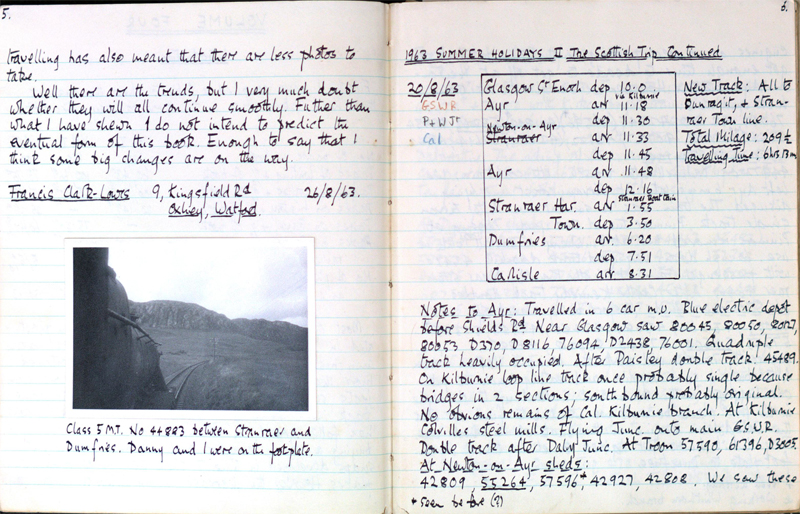 5.
travelling has also meant that there are less photos to
take.
Well there are the trends, but I very much doubt
whether they will all continue smoothly. Further than
what I have shewn I do not intend to predict the
eventual form of this book. Enough to say that I
think some big changes are on the way.
Francis Clark-Lowes 9, Kingsfield Rd 26/8/63.
Oxhey, Watford.
Class 5 MT. No 44883 between Stranraer and
Dumfries. Danny and I were on the footplate.
6.
1963 SUMMER HOLIDAYS II The Scottish Trip Continued
20/8/63
GSWR
P+WJt
Cal
Glasgow St Enoch dep 10.0
via Kilbirnie
Ayr arr 11.18
dep 11.30
Newton-on-Ayr
Stranraer arr 11.33
dep 11.45
Ayr arr 11.48
dep 12.16
Stranraer Boat Train
Stranraer Har. arr 1.55
Town. dep 3.50
Dumfries arr 6.20
dep 7.51
Carlisle arr 8.31
New Track: All to
Dunragit, + Stran-
raer Town line.
Total Milage: 209½
Travelling Time: 6hrs 13m
Notes to Ayr: Travelled in 6 car m.u. Blue electric depot
before Shields Rd. Near Glasgow saw 80045, 80050, 80127,
80053 D370, D8116, 76094, D2438, 76001. Quadruple
track heavily occupied. After Paisley double track 45489.
On Kilburnie loop line track once probably single because
bridges in 2 sections; south bound probably original.
No obvious remains of Cal. Kilburnie branch. At Kilburnie
Colvilles steel mills. Flying Junc. onto main G.S.W.R.
Double track after Dalry Junc. At Troon 57590, 61396, D3005.
At Newton-on-Ayr sheds:
42809, 55264, 57596*, 42927, 42808. We saw these
* seen before (?)